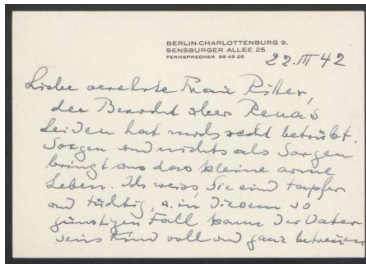 BERLIN-CHARLOTTENBURG 9.
SENSBURGER ALLEE 25
FERNSPRECHER
22. III 42
Liebe verehrte Frau Ritter,
der Bericht über Renas
Leiden hat mich recht betrübt.
Sorgen und nichts als Sorgen
bringt uns das kleine arme
Leben. Ich weiss, Sie sind tapfer
und tüchtig, u. in diesem so
günstigen Fall kann der Vater
sein Kind voll und ganz betreuen